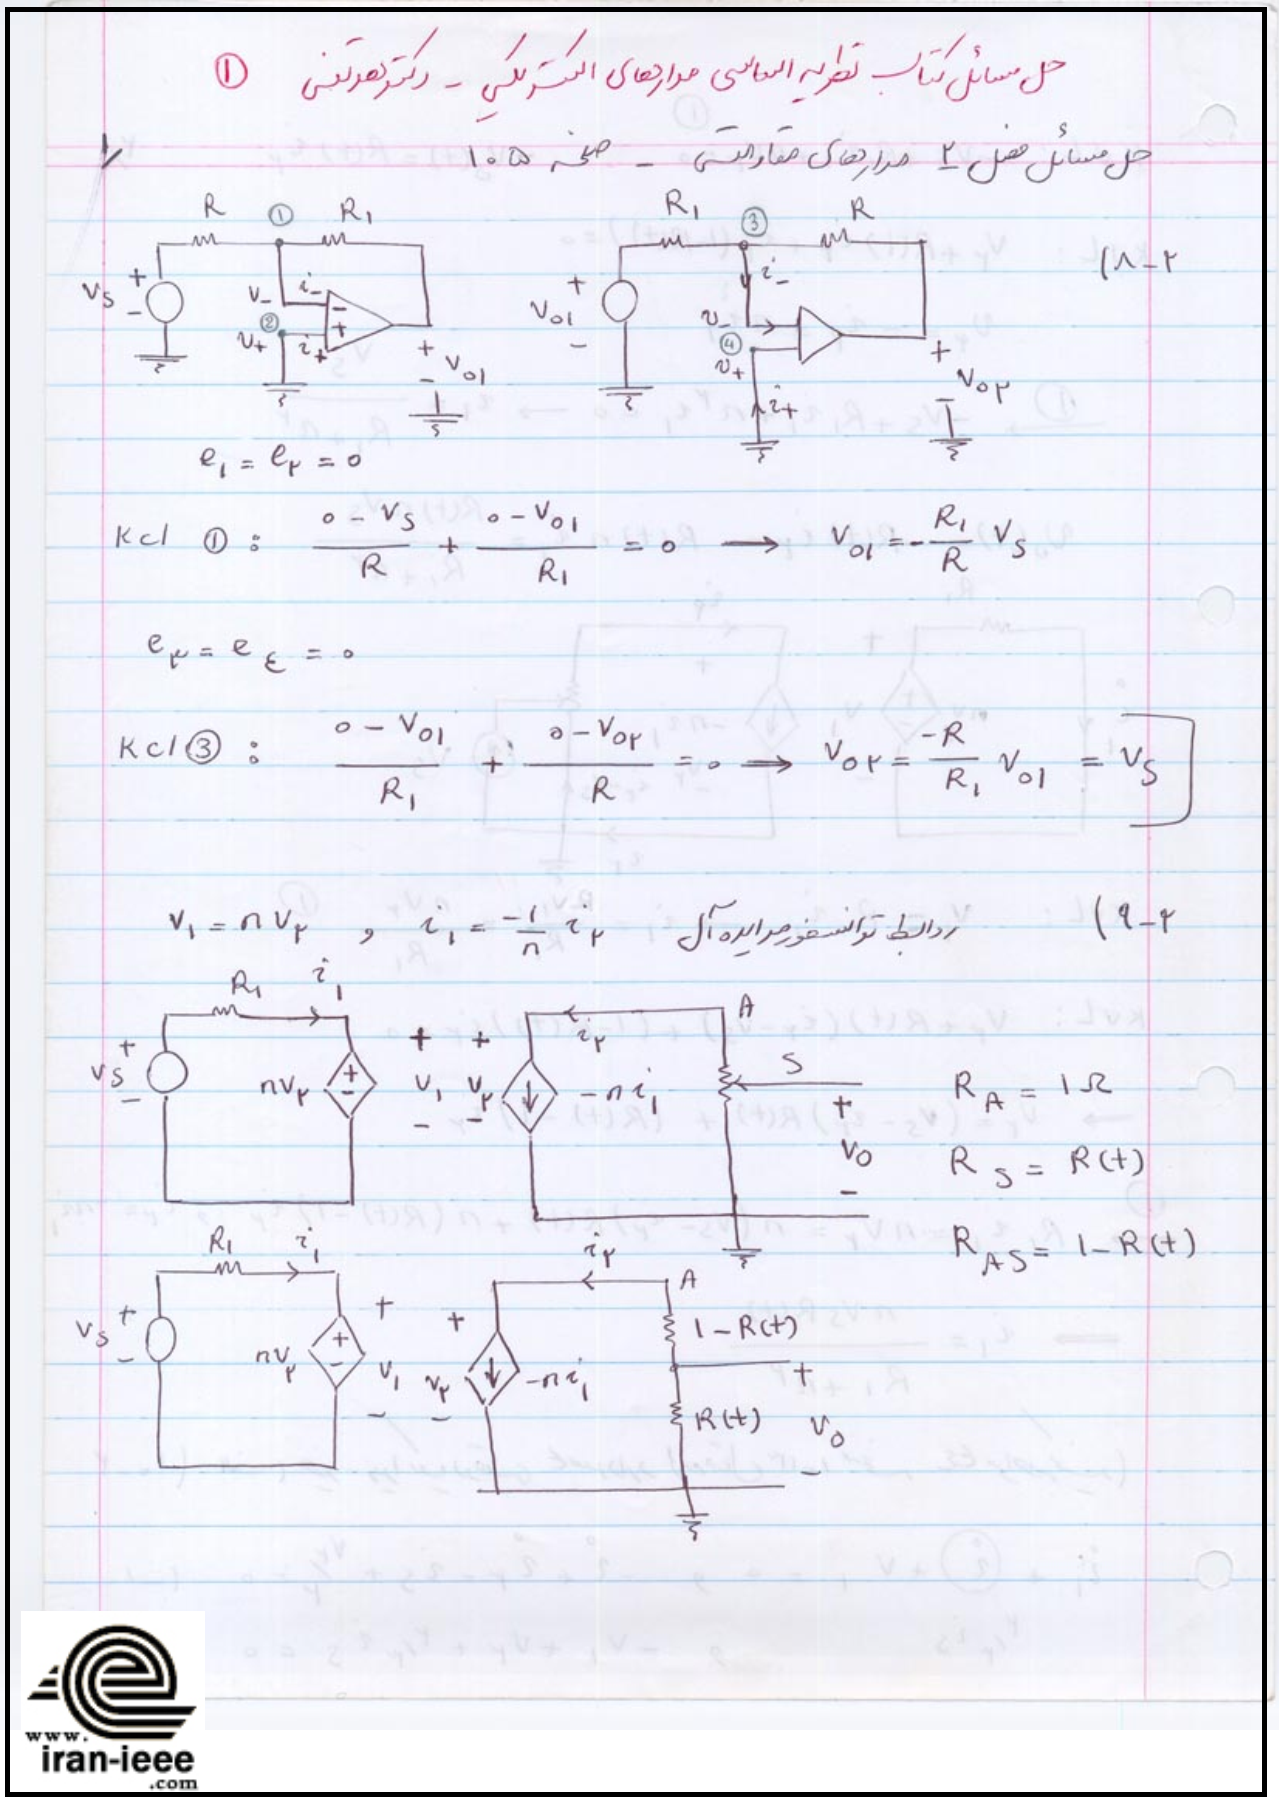 حل مسائل کتاب نظریه اساسی مدارهای الکتریکی - دکتر جبه‌دار ①
حل مسائل فصل ۲ مدارهای مقاومتی - صفحه ۱۰۵
۲-۸)
R ① R₁
Vs + -
V₋ i₋
② V₊ i₊
+ - V₀₁
R₁ ③ R
V₀₁ + -
i₋
v₋
④ v₊ i₊
+ - V₀₂
e₁ = e₂ = 0
Kcl ①: (0 - Vs)/R + (0 - V₀₁)/R₁ = 0 → V₀₁ = -(R₁/R) Vs
e₃ = e₄ = 0
Kcl ③: (0 - V₀₁)/R₁ + (0 - V₀₂)/R = 0 → V₀₂ = (-R/R₁) V₀₁ = Vs
۲-۹) روابط ترانسفورمر ایده‌آل V₁ = nV₂ , i₁ = (-1/n) i₂
R₁ i₁ i₂ A
Vs + - nV₂ + - + V₁ - + V₂ - -ni₁ S + V₀ -
R_A = 1Ω
R_S = R(t)
R_AS = 1 - R(t)
R₁ i₁ i₂ A
Vs + - nV₂ + - + V₁ - + V₂ - -ni₁ 1-R(t)
R(t) + V₀ -
www.
iran-ieee
.com